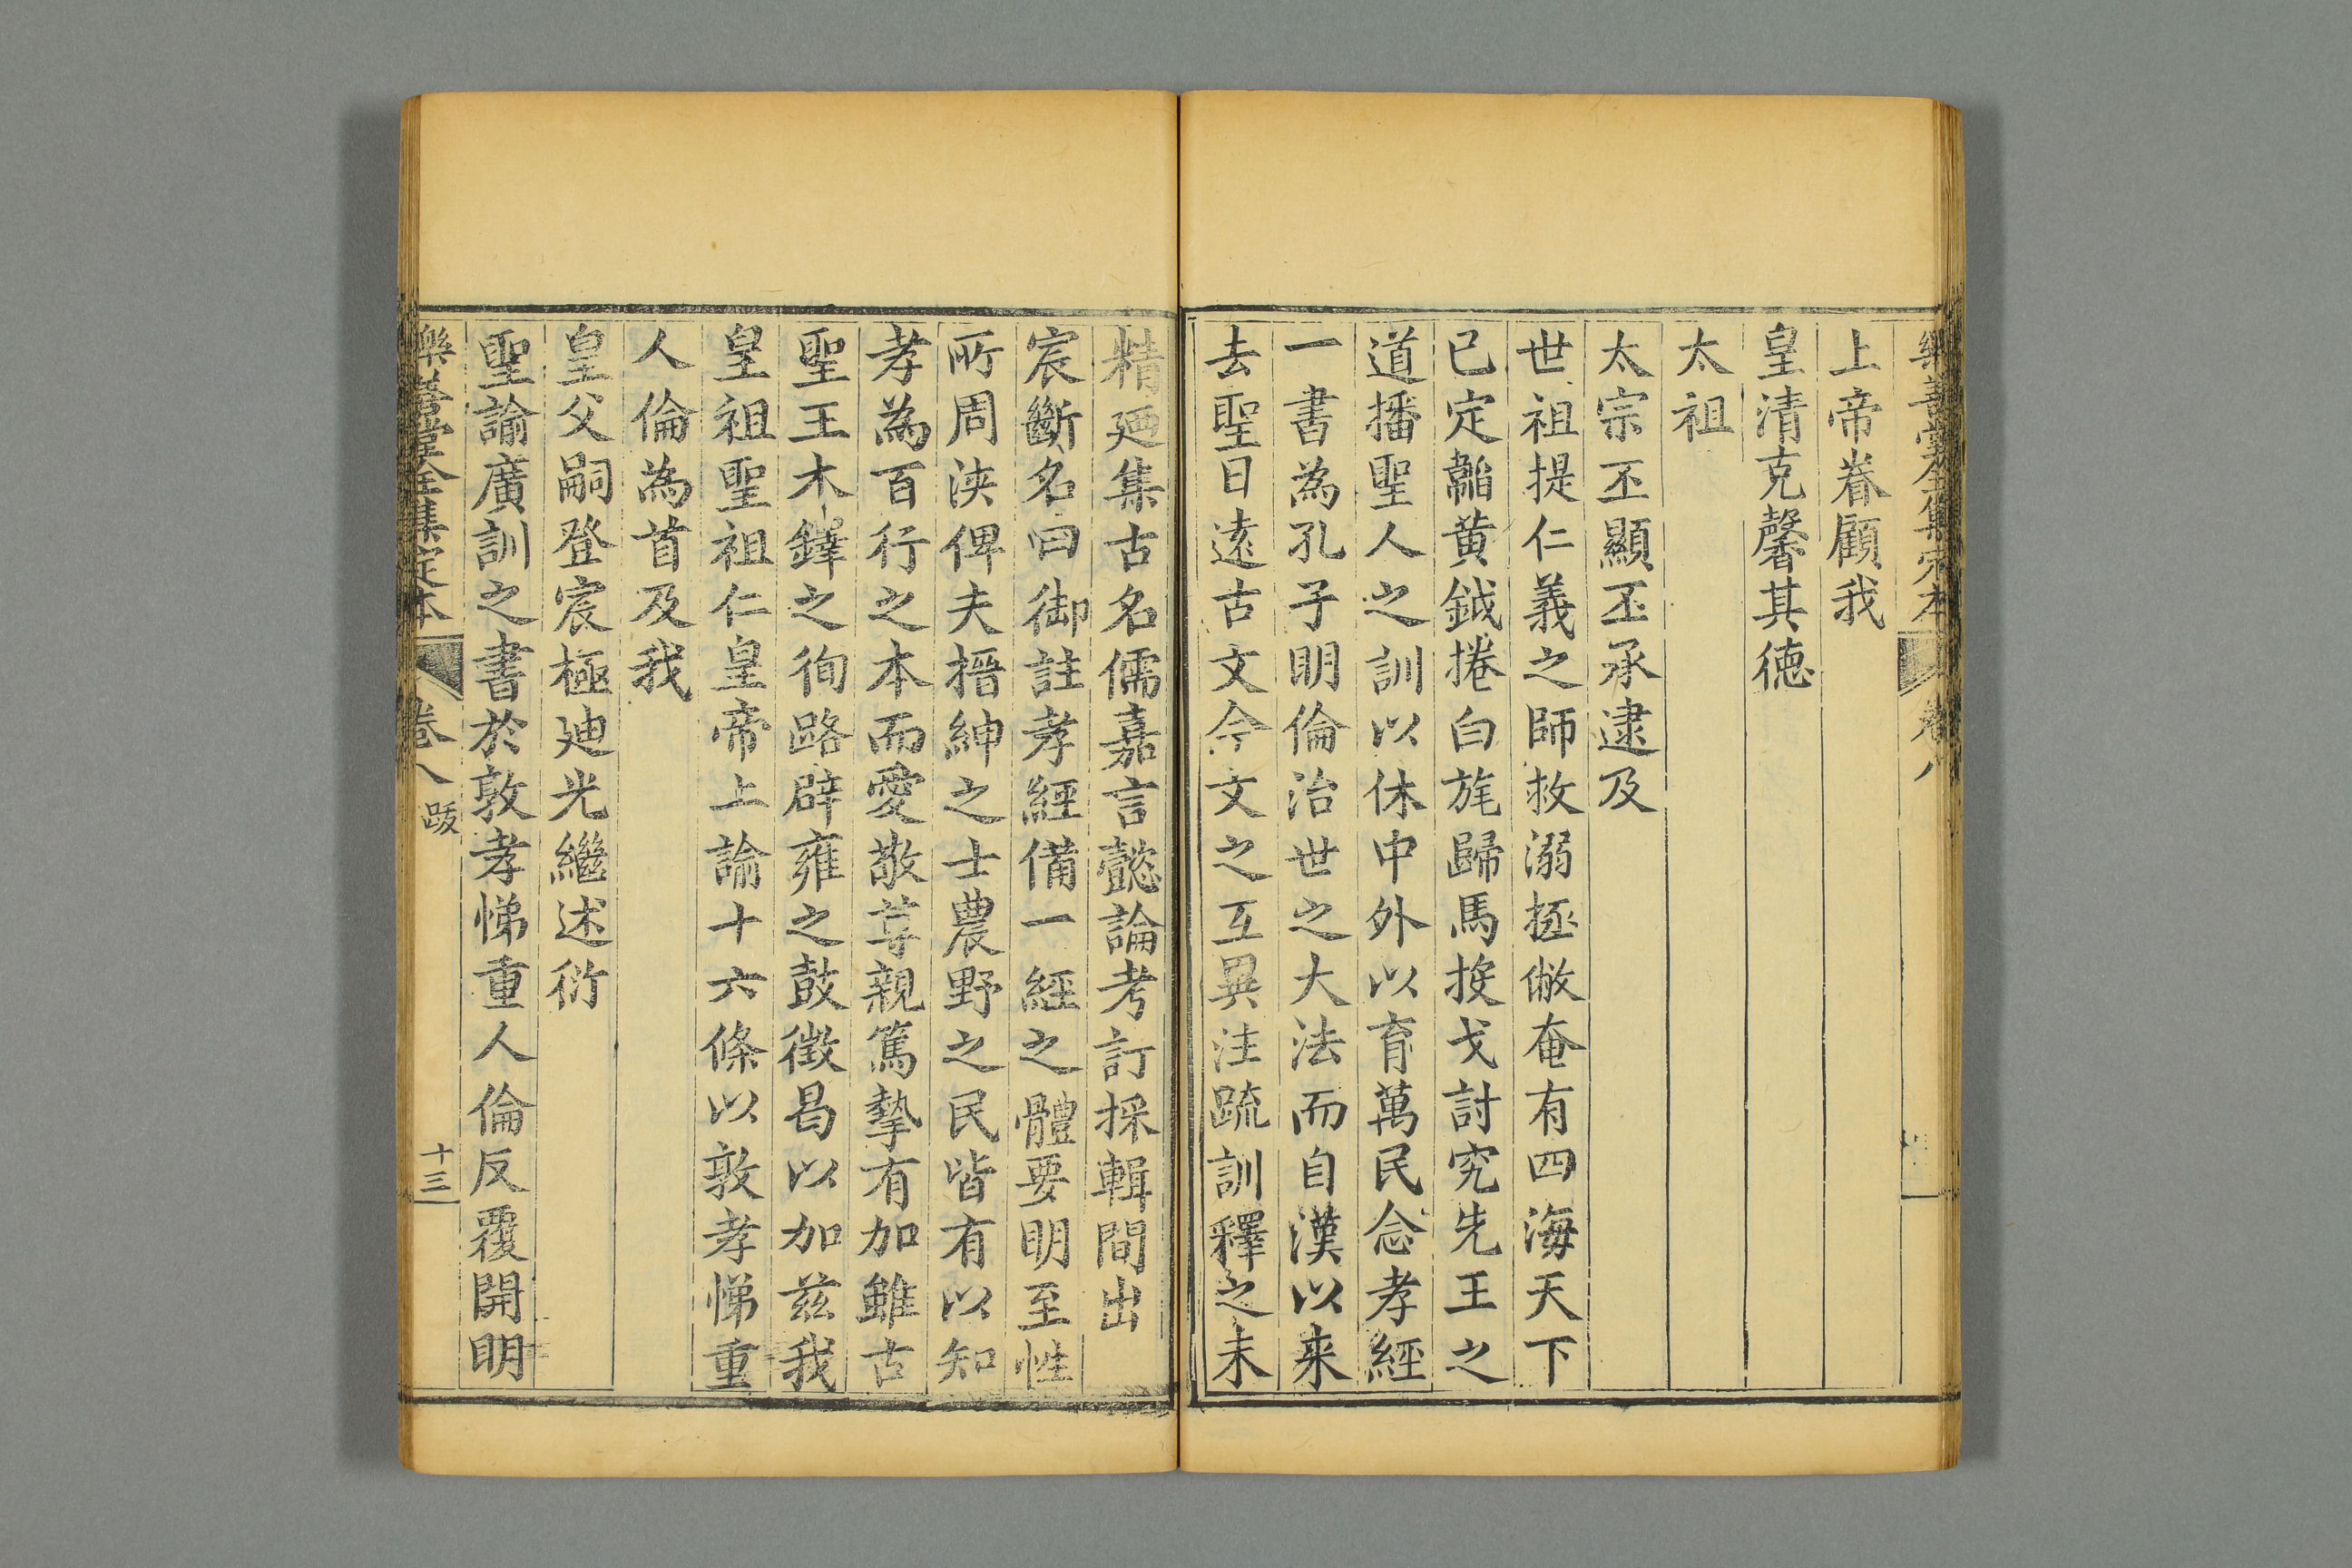 樂善堂全集定本 卷八
上帝眷顧我
皇清克馨其德
太祖
太宗丕顯丕承逮及
世祖提仁義之師救溺拯僘奄有四海天下
已定韜黄鉞捲白旄歸馬投戈討究先王之
道播聖人之訓以休中外以育萬民念孝經
一書為孔子明倫治世之大法而自漢以来
去聖日遠古文今文之互異注疏訓釋之未
精廼集古名儒嘉言懿論考訂採輯間出
宸斷名曰御註孝經備一經之體要明至性
所周浹俾夫搢紳之士農野之民皆有以知
孝為百行之本而愛敬尊親篤摯有加雖古
聖王木鐸之徇路辟雍之鼓徵曷以加茲我
皇祖聖祖仁皇帝上諭十六條以敦孝悌重
人倫為首及我
皇父嗣登宸極廸光繼述衍
聖諭廣訓之書於敦孝悌重人倫反覆開明
樂善堂全集定本 卷八 跋 十三